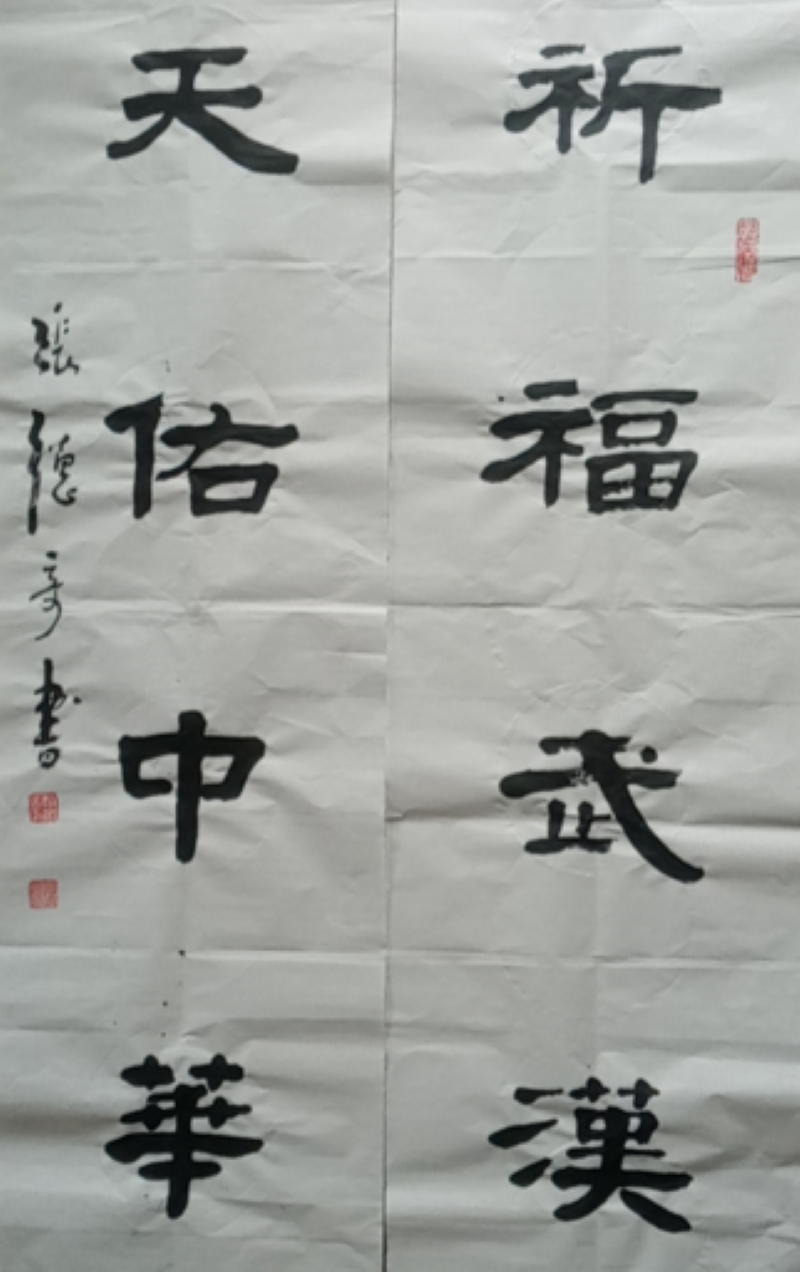 祈福武漢
天佑中華
張德奇書